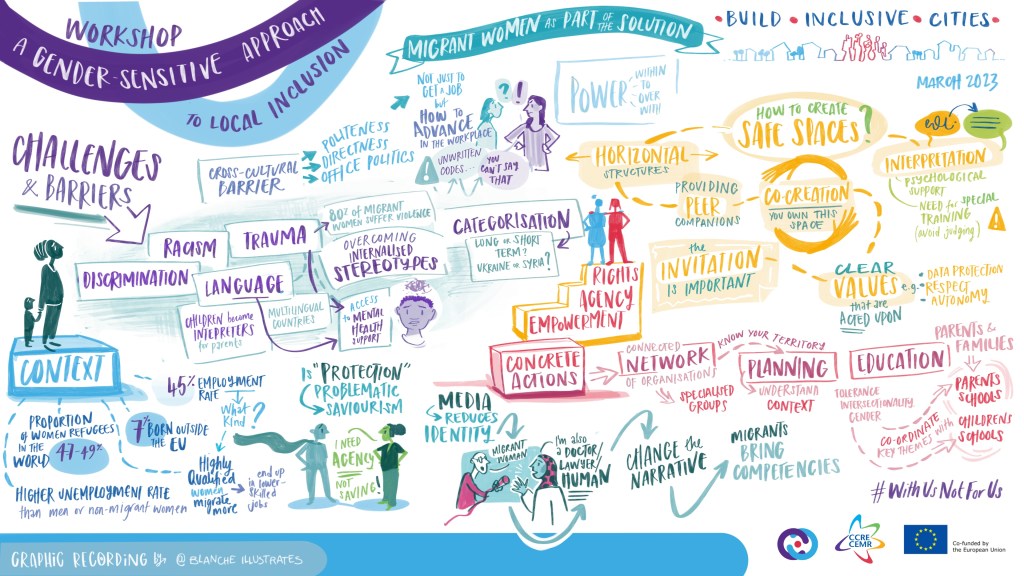 WORKSHOP
A GENDER-SENSITIVE APPROACH
TO LOCAL INCLUSION
MIGRANT WOMEN AS PART OF THE SOLUTION
• BUILD • INCLUSIVE • CITIES •
MARCH 2023
CHALLENGES
& BARRIERS
CROSS-CULTURAL
BARRIER
POLITENESS
DIRECTNESS
OFFICE POLITICS
NOT JUST TO
GET A JOB
but
HOW TO
ADVANCE
IN THE WORKPLACE
UNWRITTEN
CODES...
YOU
CAN'T SAY
THAT
?!
POWER
WITHIN
TO
OVER
WITH
HOW TO CREATE
SAFE SPACES?
HORIZONTAL
STRUCTURES
PROVIDING
PEER
COMPANIONS
CO-CREATION
YOU OWN THIS
SPACE
INTERPRETATION
PSYCHOLOGICAL
SUPPORT
NEED for SPECIAL
TRAINING
(avoid judging)
the
INVITATION
IS IMPORTANT
CLEAR
VALUES
that are
ACTED UPON
e.g.
DATA PROTECTION
RESPECT
AUTONOMY
RACISM
TRAUMA
80% OF MIGRANT
WOMEN SUFFER VIOLENCE
DISCRIMINATION
LANGUAGE
OVERCOMING
INTERNALISED
STEREOTYPES
CATEGORISATION
LONG OR SHORT
TERM?
UKRAINE OR SYRIA?
CHILDREN become
INTEPRETERS
for parents
MULTILINGUAL
COUNTRIES
ACCESS
to MENTAL
HEALTH
SUPPORT
RIGHTS
AGENCY
EMPOWERMENT
CONTEXT
PROPORTION
OF WOMEN REFUGEES
IN THE
WORLD 47-49%
45% EMPLOYMENT
RATE
What
Kind
?
7% BORN OUTSIDE
THE EU
Highly
Qualified
women
migrate
more
end up
in lower-
skilled
jobs
HIGHER UNEMPLOYMENT RATE
than men or non-migrant women
IS "PROTECTION"
PROBLEMATIC
SAVIOURISM
I NEED
AGENCY
NOT
SAVING!
MEDIA
REDUCES
IDENTITY
MIGRANT
WOMAN
I'm also
a DOCTOR/
LAWYER/
HUMAN
CHANGE the
NARRATIVE
MIGRANTS
BRING
COMPETENCIES
CONCRETE
ACTIONS
CONNECTED
NETWORK
OF ORGANISATIONS
SPECIALISED
GROUPS
KNOW YOUR TERRITORY
PLANNING
UNDERSTAND
CONTEXT
EDUCATION
TOLERANCE
INTERSECTIONALITY
GENDER
PARENTS &
FAMILIES
PARENTS
SCHOOLS
CO-ORDINATE with
KEY THEMES
CHILDREN'S
SCHOOLS
#WithUsNotForUs
GRAPHIC RECORDING by @BLANCHE ILLUSTRATES
CCRE
CEMR
Co-funded by
the European Union